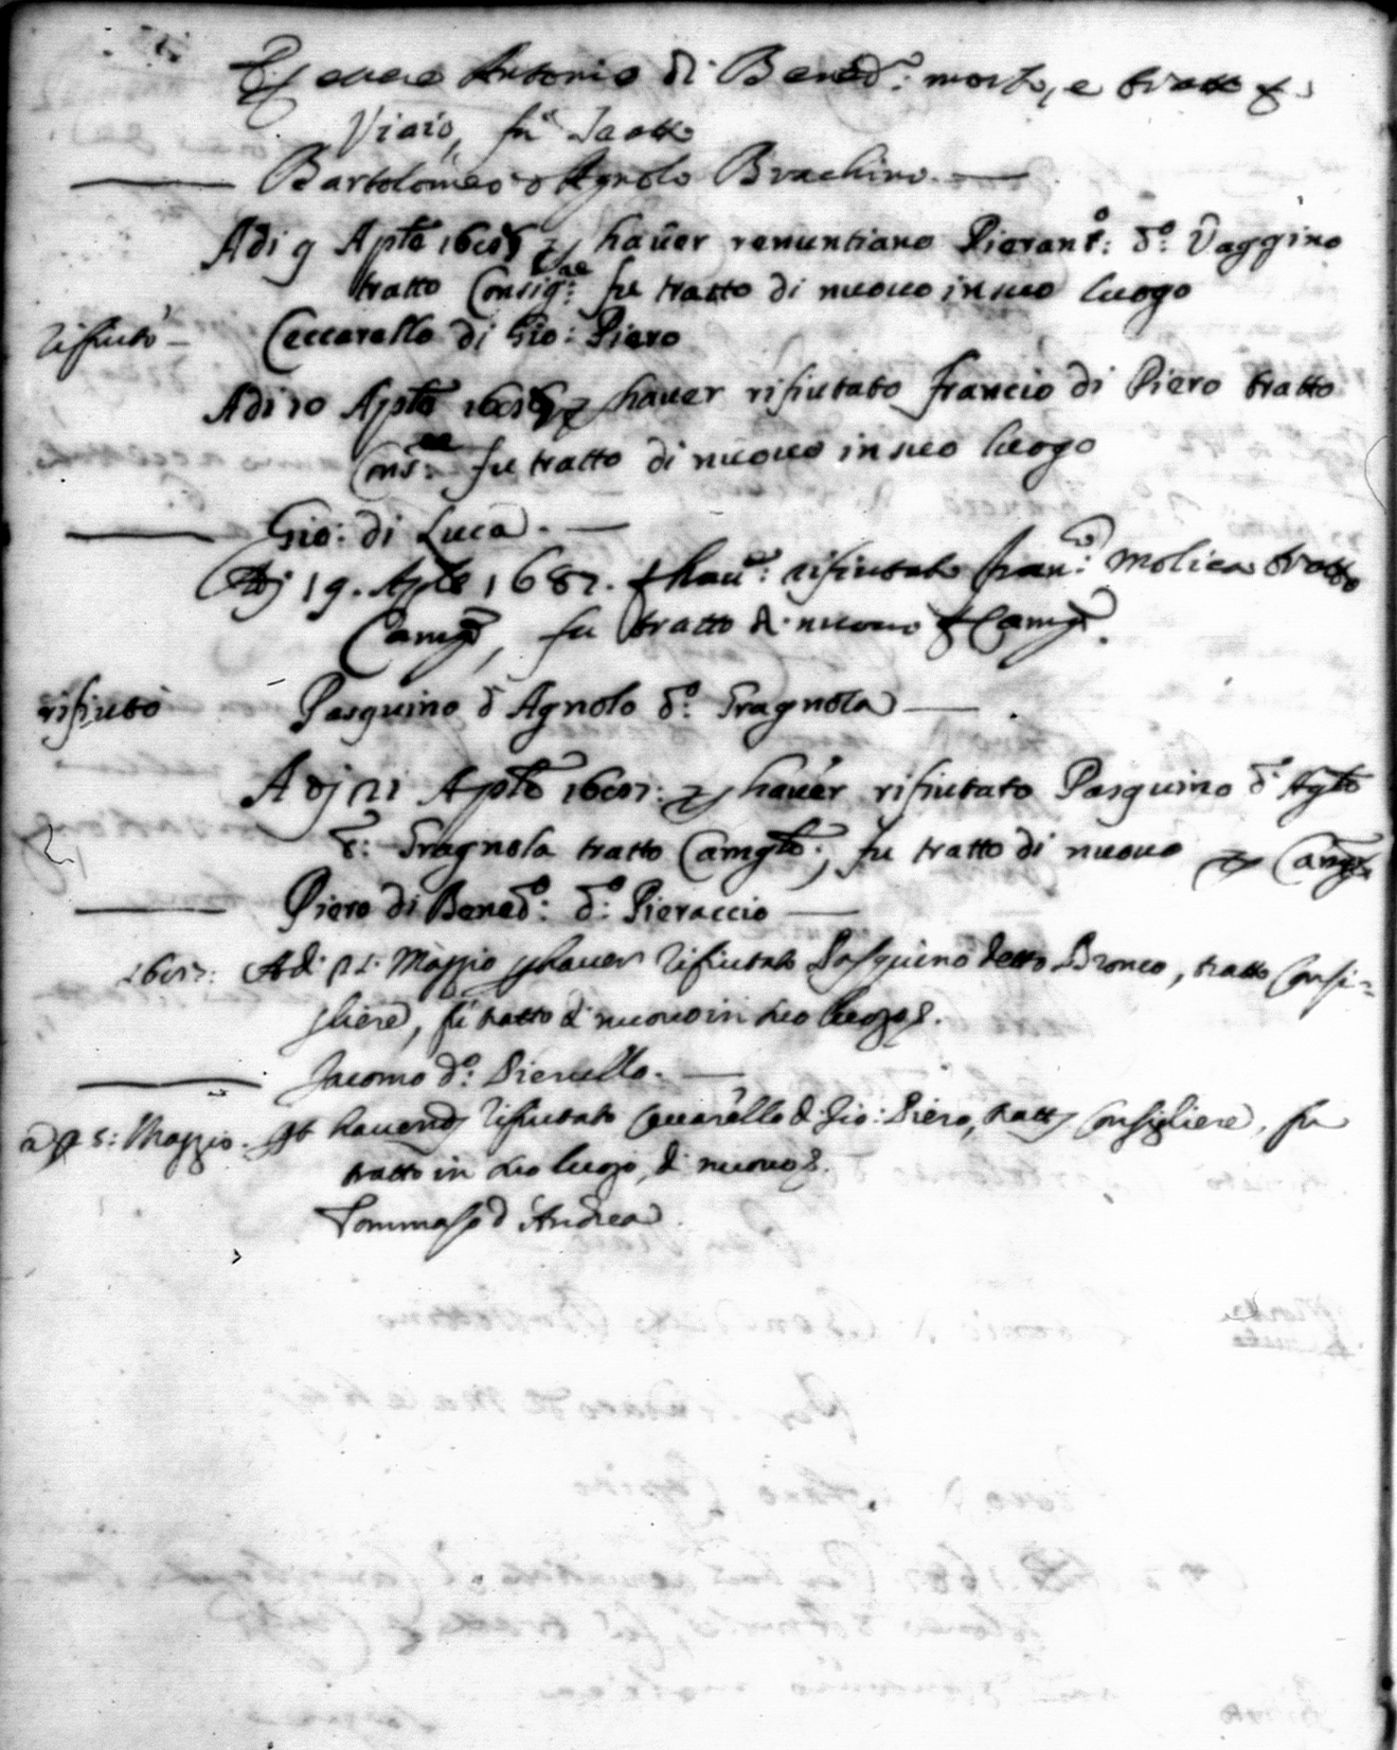 essere Antonio di Bened.º morto, e tratto p
Viaio, fu Tratto
Bartolomeo d'Agnolo Brachino.
Adi 9 Aple 1687 p haver renuntiano Pierantº: dº: Vaggino
tratto Consigre: fu tratto di nuovo in suo luogo
rifiutò — Ceccarello di Gio: Piero
Adi 10 Aple 1687 p haver rifiutato francio di Piero tratto
Consre: fu tratto di nuovo in suo luogo
Gio: di Luca.
Adj 19. Aple 1687. p hauer: rifiutato franco: Molica tratto
Camgo, fu tratto di nuovo p Camgo.
rifiutò Pasquino d Agnolo dº: Fragnola
Adj 21 Aple 1687: p haver rifiutato Pasquino d' Aglo
dº: Fragnola tratto Camglo:, fu tratto di nuovo p Camgo
Piero di Benedº: dº: Pieraccio
1687: Adi 12: Maggio p haver rifiutato Pasquino detto Bronco, tratto Consi=
gliere, fù tratto di nuovo in suo luogo.
Jacomo dº: Pierello.
a dì 15: Maggio. P havend rifiutato Ceccarello di Gio: Piero, tratto Consigliere, fu
tratto in suo luogo, di nuovo.
Tommaso d'Andrea